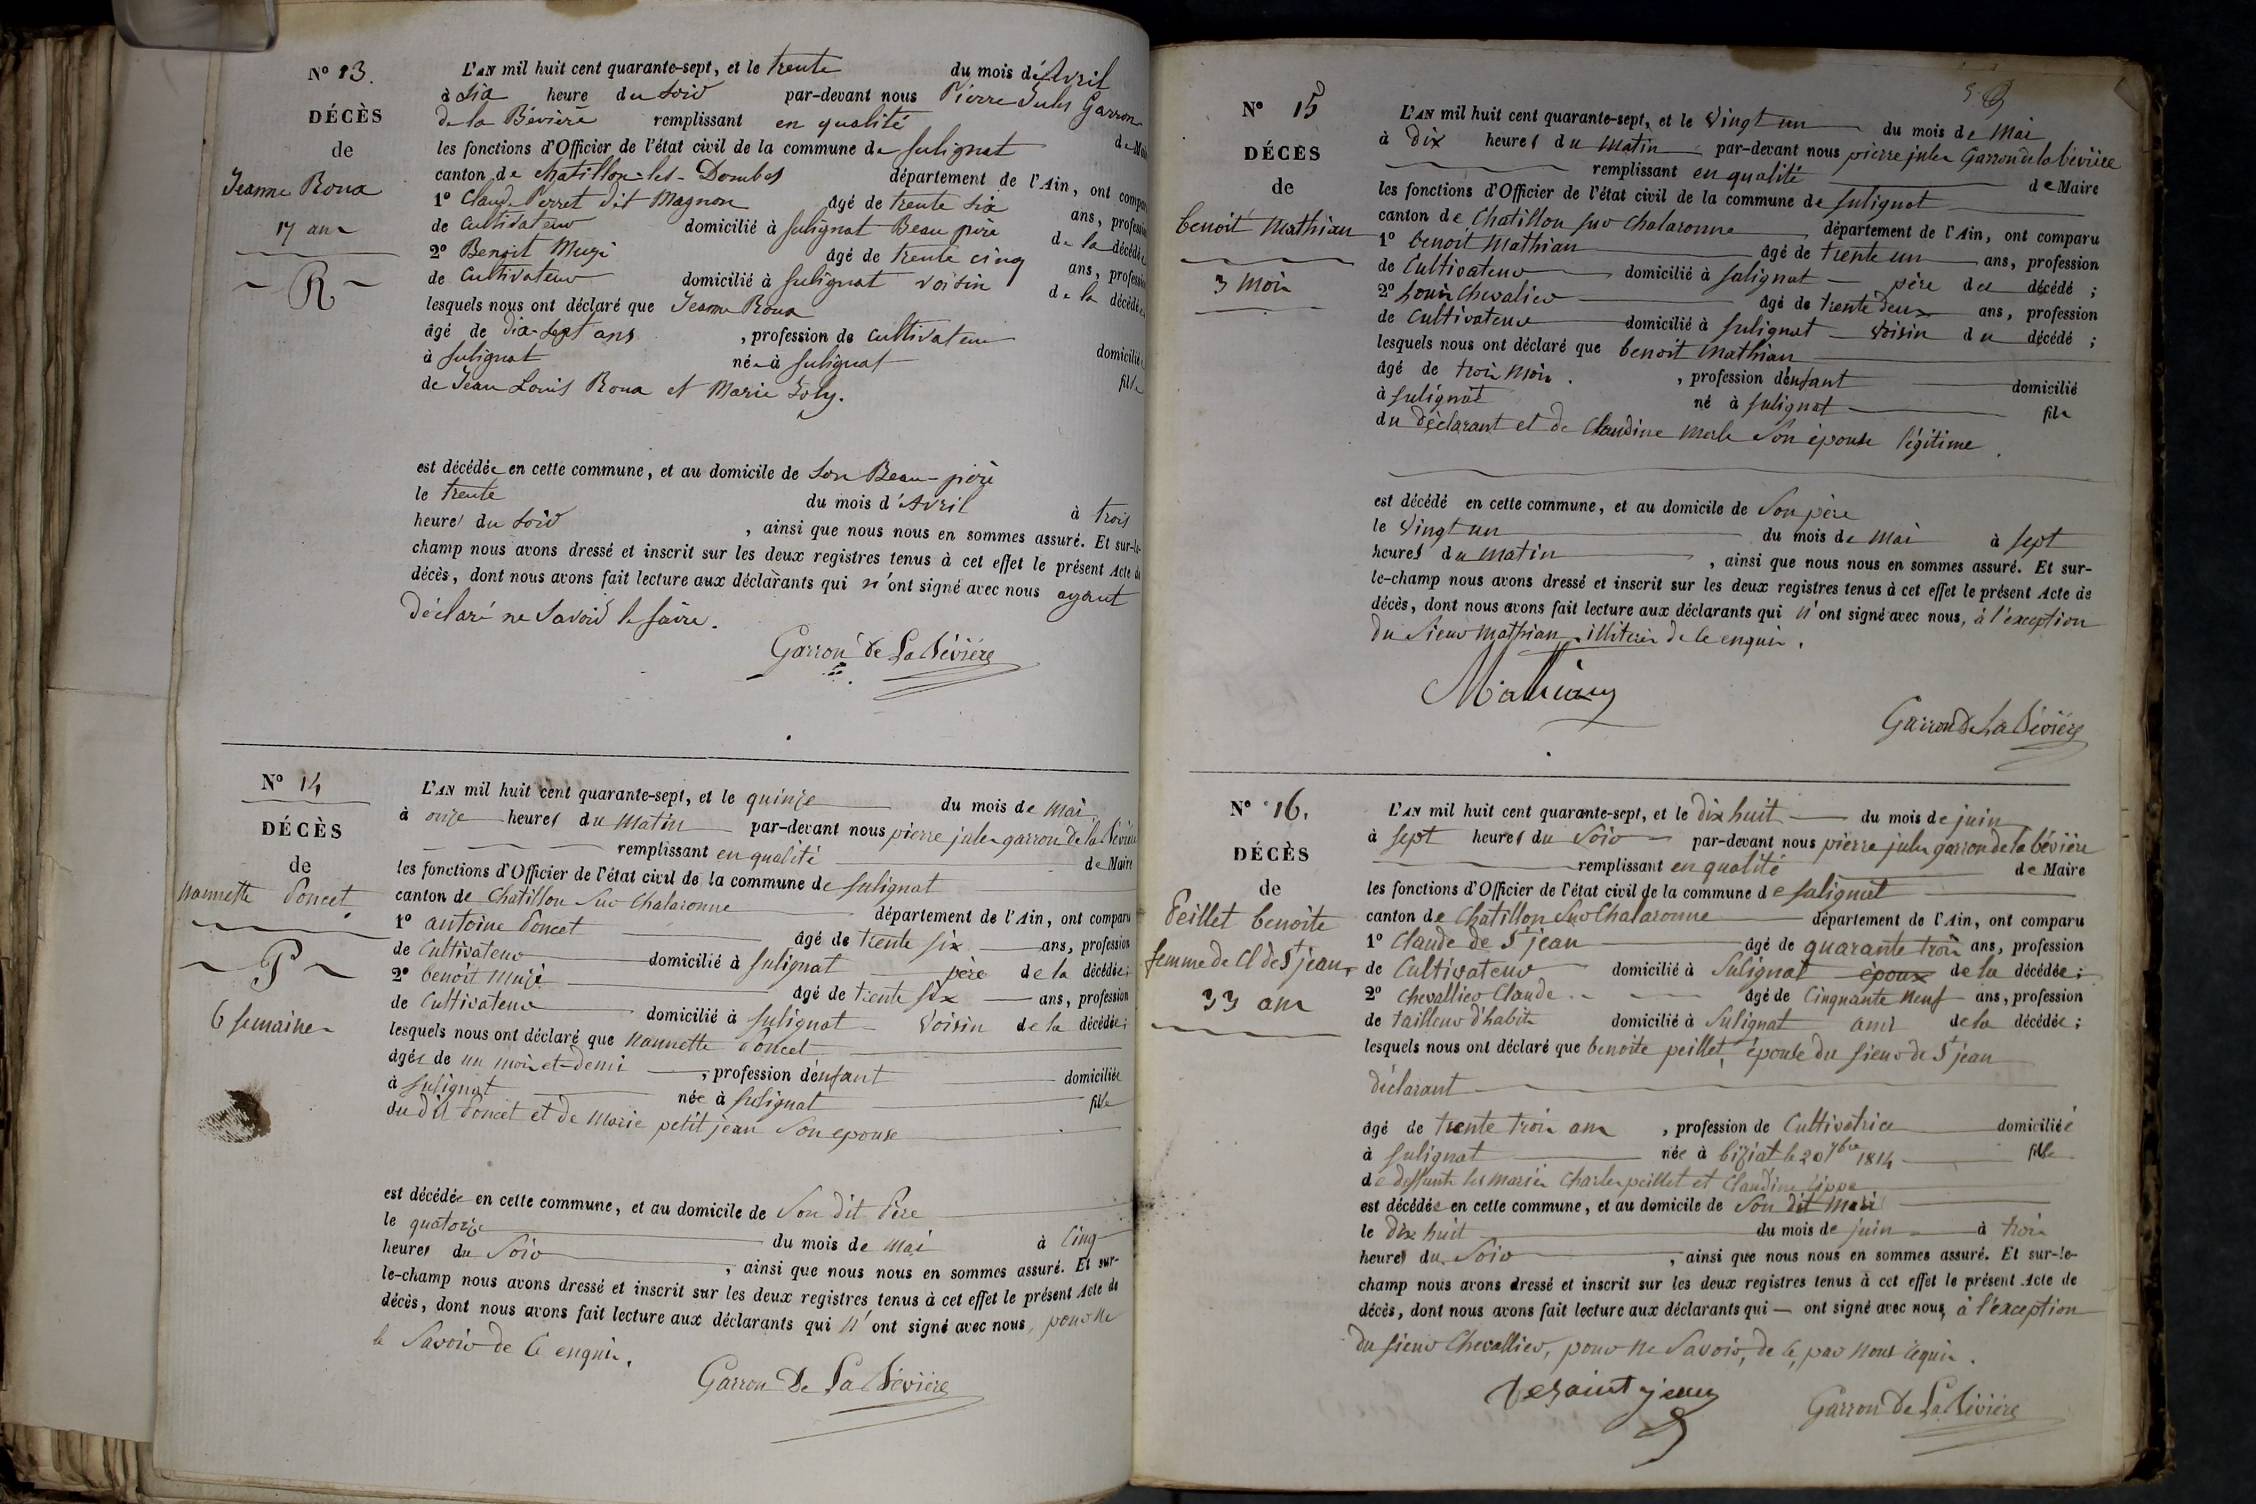 N° 13.
DÉCÈS
de
Jeanne Roux
17 ans
R
L'AN mil huit cent quarante-sept, et le trente du mois d'Avril
à six heure du soir par-devant nous Pierre Jules Garron
de la Bévière remplissant en qualité de Maire
les fonctions d'Officier de l'état civil de la commune de Sulignat
canton de Chatillon-les-Dombes département de l'Ain, ont comparu
1° Claude Perret dit Magnon âgé de trente six ans, profession
de Cultivateur domicilié à Sulignat Beau père de la décédée
2° Benoit Mugi âgé de trente cinq ans, profession
de Cultivateur domicilié à Sulignat voisin de la décédée
lesquels nous ont déclaré que Jeanne Roux
âgé de dix-sept ans, profession de cultivateur domiciliée
à Sulignat née à Sulignat fille
de Jean Louis Roux et Marie Joly.
est décédée en cette commune, et au domicile de son Beau-père
le trente du mois d'Avril à trois
heures du soir, ainsi que nous nous en sommes assuré. Et sur-le-
champ nous avons dressé et inscrit sur les deux registres tenus à cet effet le présent Acte de
décès, dont nous avons fait lecture aux déclarants qui n'ont signé avec nous ayant
déclaré ne savoir le faire.
Garron de La Bévière
N° 14
DÉCÈS
de
Nannette Poncet
P
6 semaines
L'AN mil huit cent quarante-sept, et le quinze du mois de Mai
à onze heures du Matin par-devant nous pierre jules garron de la Bévière
remplissant en qualité de Maire
les fonctions d'Officier de l'état civil de la commune de Sulignat
canton de Chatillon Sur Chalaronne département de l'Ain, ont comparu
1° antoine Poncet âgé de trente six ans, profession
de Cultivateur domicilié à Sulignat père de la décédée;
2° benoit Mugi âgé de trente six ans, profession
de Cultivateur domicilié à Sulignat Voisin de la décédée;
lesquels nous ont déclaré que Nannette Poncet
âgée de un mois et demi, profession d'enfant domiciliée
à Sulignat née à Sulignat fille
du dit Poncet et de Marie petit jean Son epouse
est décédée en cette commune, et au domicile de Son dit Père
le quatorze du mois de Mai à Cinq
heures du Soir, ainsi que nous nous en sommes assuré. Et sur-
le-champ nous avons dressé et inscrit sur les deux registres tenus à cet effet le présent Acte de
décès, dont nous avons fait lecture aux déclarants qui n'ont signé avec nous, pour ne
le Savoir de Ce enquis.
Garron De La Bévière
N° 15
DÉCÈS
de
benoit Mathian
3 Mois
L'AN mil huit cent quarante-sept, et le Vingt un du mois de Mai
à Dix heures du Matin par-devant nous pierre jules Garron de la bévière
remplissant en qualité de Maire
les fonctions d'Officier de l'état civil de la commune de Sulignat
canton de Chatillon sur Chalaronne département de l'Ain, ont comparu
1° benoit Mathian âgé de trente un ans, profession
de Cultivateur domicilié à Sulignat père du décédé;
2° Louis Chevalier âgé de trente deux ans, profession
de Cultivateur domicilié à Sulignat Voisin du décédé;
lesquels nous ont déclaré que benoit Mathian
âgé de trois Mois, profession d'enfant domicilié
à Sulignat né à Sulignat fils
du Déclarant et de Claudine Merle Son épouse légitime.
est décédé en cette commune, et au domicile de Son père
le Vingt un du mois de Mai à sept
heures du Matin, ainsi que nous nous en sommes assuré. Et sur-
le-champ nous avons dressé et inscrit sur les deux registres tenus à cet effet le présent Acte de
décès, dont nous avons fait lecture aux déclarants qui n'ont signé avec nous, à l'exception
du Sieur Mathian, illitérés de Ce enquis.
Mathian
Garron De La Bévière
N° 16.
DÉCÈS
de
Peillet benoite
femme de Cl de St jean
33 ans
L'AN mil huit cent quarante-sept, et le dix huit du mois de juin
à sept heures du Soir par-devant nous pierre jules garron de la bévière
remplissant en qualité de Maire
les fonctions d'Officier de l'état civil de la commune de Sulignat
canton de Chatillon Sur Chalaronne département de l'Ain, ont comparu
1° Claude de St jean âgé de quarante trois ans, profession
de Cultivateur domicilié à Sulignat époux de la décédée;
2° Chevallier Claude âgé de Cinquante neuf ans, profession
de tailleur d'habits domicilié à Sulignat ami de la décédée;
lesquels nous ont déclaré que benoite peillet, épouse du sieur de St jean
Déclarant
âgé de trente trois ans, profession de Cultivatrice domiciliée
à Sulignat née à biziat le 20 7bre 1814 fille
de deffunts les mariés Charles peillet et Claudine
est décédée en cette commune, et au domicile de Son dit Mari
le Dix huit du mois de juin à trois
heures du Soir, ainsi que nous nous en sommes assuré. Et sur-le-
champ nous avons dressé et inscrit sur les deux registres tenus à cet effet le présent Acte de
décès, dont nous avons fait lecture aux déclarants qui ont signé avec nous, à l'exception
du sieur Chevallier, pour ne Savoir, de Ce, par nous requis.
Desaint jean
Garron De La Bévière